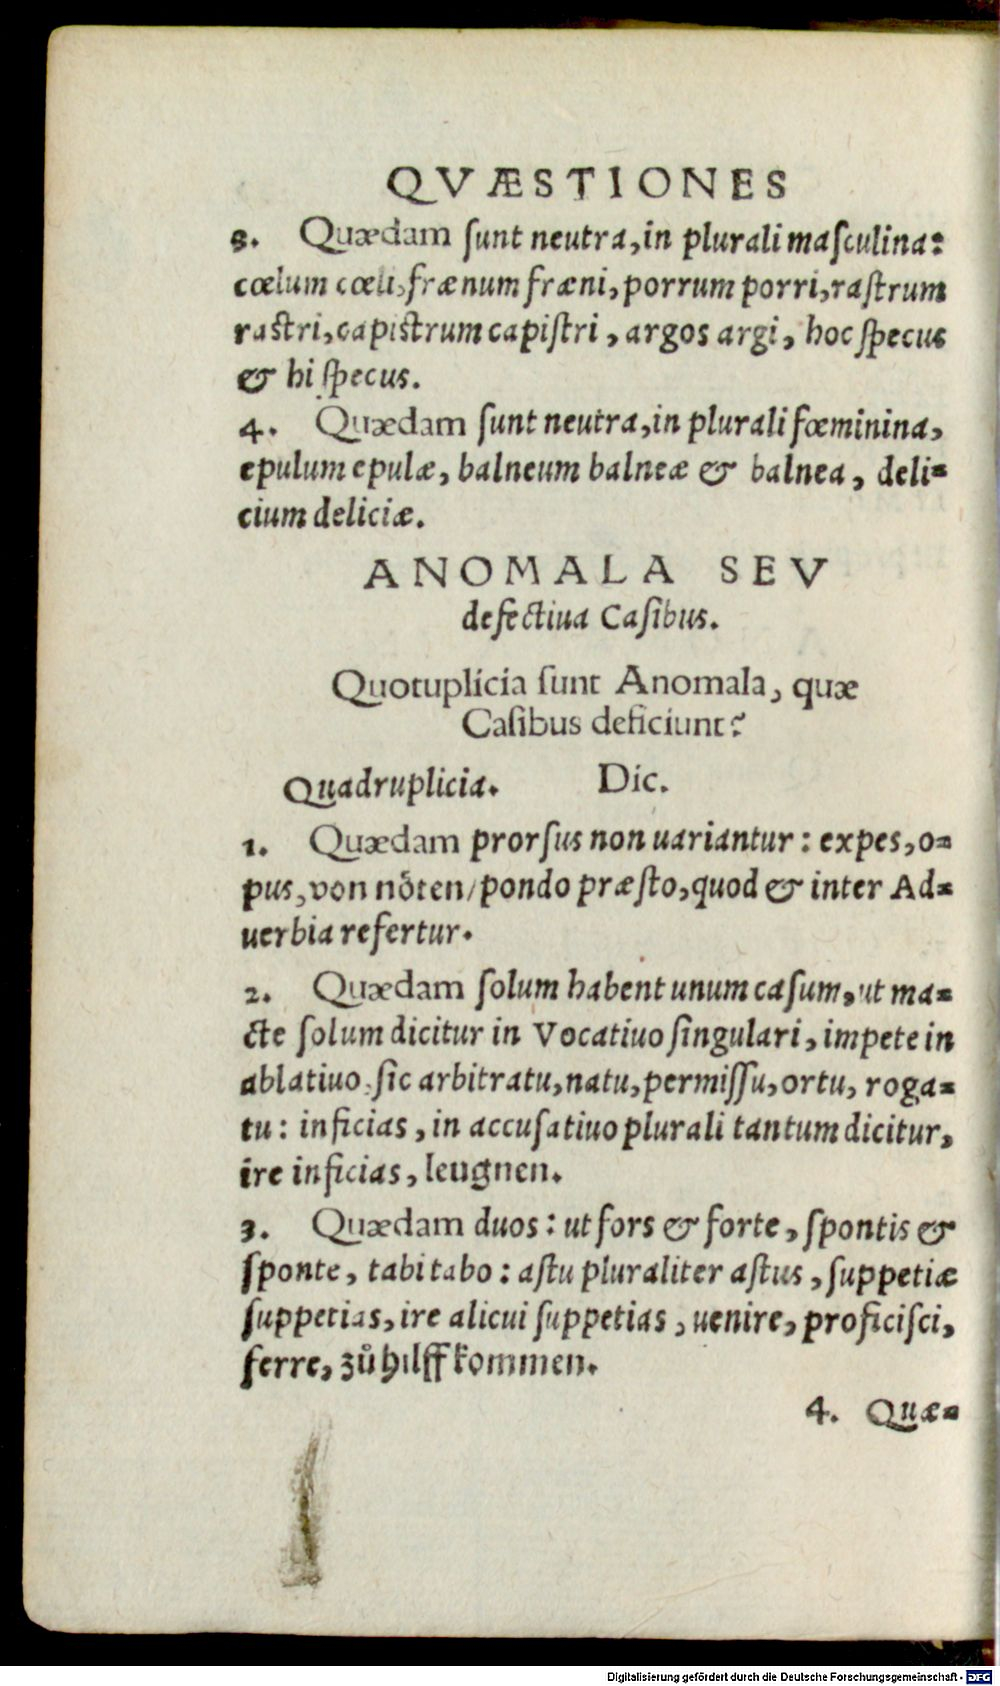 QVÆSTIONES
3. Quædam sunt neutra, in plurali masculina:
cœlum cœli, frænum fræni, porrum porri, rastrum
rastri, capistrum capistri, argos argi, hoc specus
& hi specus.
4. Quædam sunt neutra, in plurali fœminina,
epulum epulæ, balneum balneæ & balnea, deli-
cium deliciæ.
ANOMALA SEV
defectiua Casibus.
Quotuplicia sunt Anomala, quæ
Casibus deficiunt?
Quadruplicia. Dic.
1. Quædam prorsus non uariantur: expes, o-
pus, von nöten/ pondo præsto, quod & inter Ad-
uerbia refertur.
2. Quædam solum habent unum casum, ut ma-
cte solum dicitur in Vocatiuo singulari, impete in
ablatiuo, sic arbitratu, natu, permissu, ortu, roga-
tu: inficias, in accusatiuo plurali tantum dicitur,
ire inficias, leugnen.
3. Quædam duos: ut fors & forte, spontis &
sponte, tabi tabo: astu pluraliter astus, suppetiæ
suppetias, ire alicui suppetias, uenire, proficisci,
ferre, zů hilff kommen.
4. Quæ-
Digitalisierung gefördert durch die Deutsche Forschungsgemeinschaft - DFG